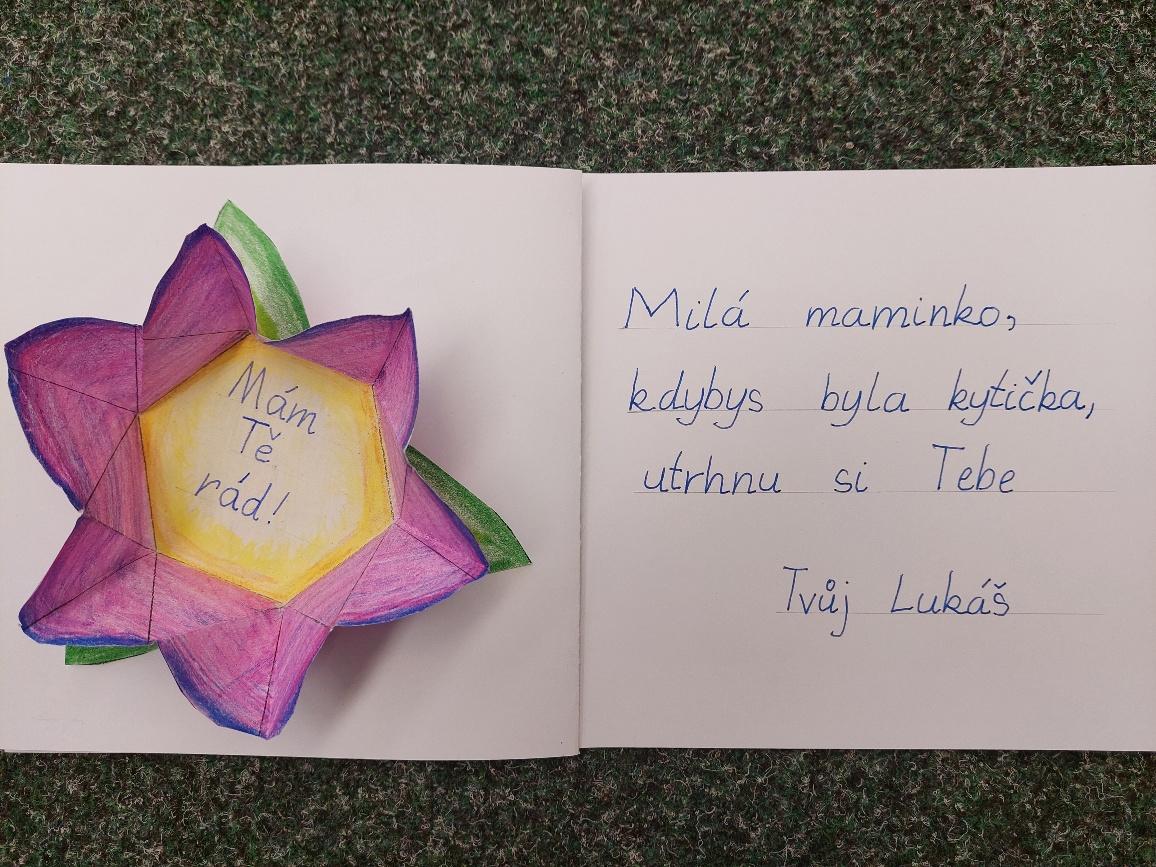 Mám
Tě
rád!
Milá maminko,
kdybys byla kytička,
utrhnu si Tebe
Tvůj Lukáš